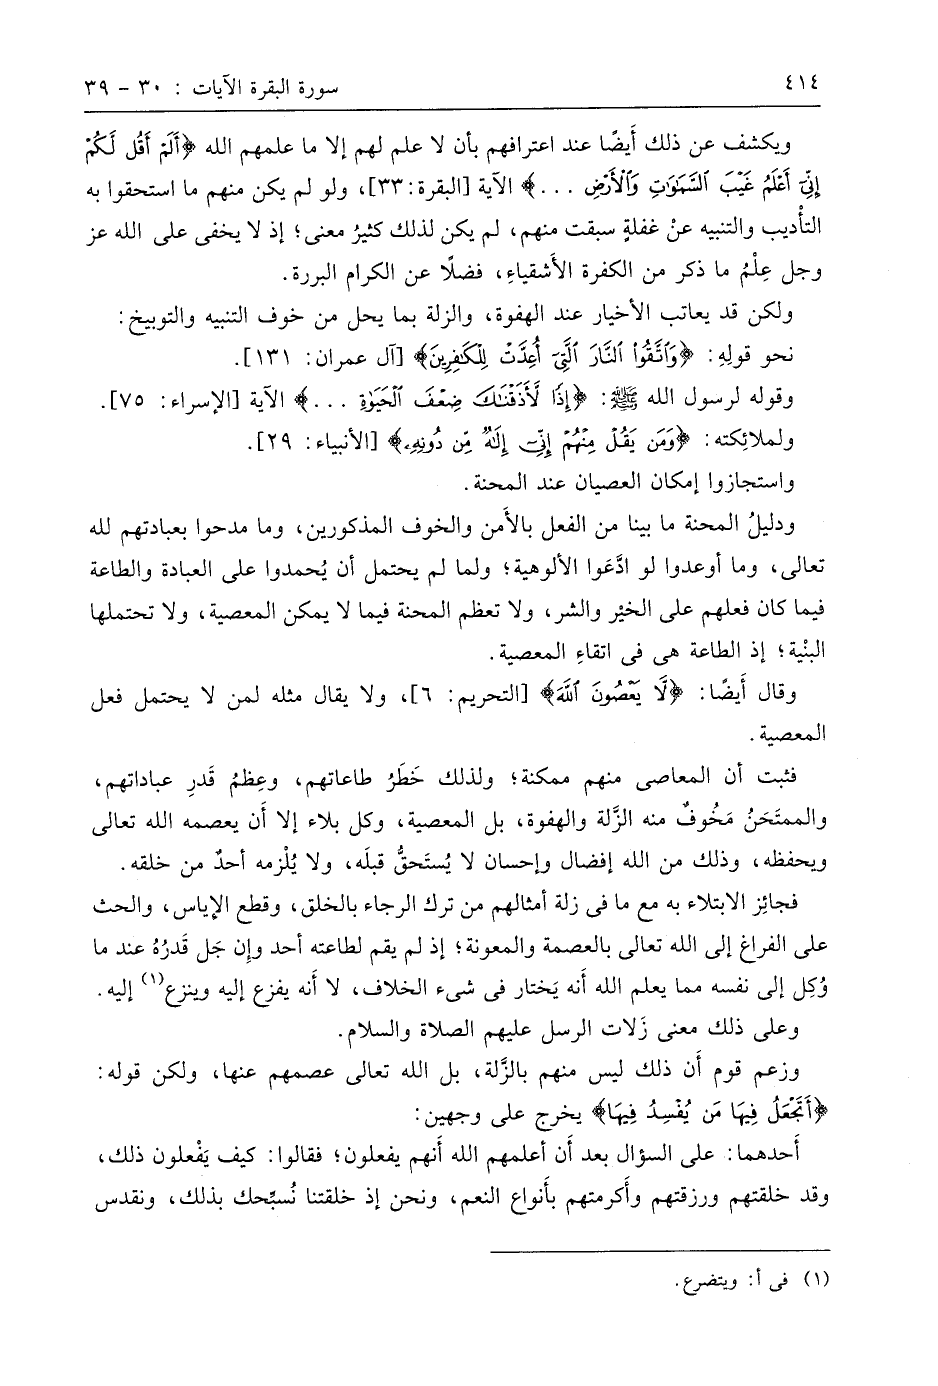 ٤١٤
سورة البقرة الآيات : ٣٠ - ٣٩
ويكشف عن ذلك أَيضًا عند اعترافهم بأن لا علم لهم إلا ما علمهم الله ﴿أَلَمْ أَقُل لَّكُمْ
إِنِّىٓ أَعْلَمُ غَيْبَ ٱلسَّمَٰوَٰتِ وَٱلْأَرْضِ ...﴾ الآية [البقرة:٣٣]، ولو لم يكن منهم ما استحقوا به
التأْديب والتنبيه عنْ غفلةٍ سبقت منهم، لم يكن لذلك كثيرُ معنى؛ إذ لا يخفى على الله عز
وجل عِلْمُ ما ذكر من الكفرة الأَشقياءِ، فضلًا عن الكرام البررة.
ولكن قد يعاتب الأخيار عند الهفوة، والزلة بما يحل من خوف التنبيه والتوبيخ:
نحو قولِهِ: ﴿وَٱتَّقُوا۟ ٱلنَّارَ ٱلَّتِىٓ أُعِدَّتْ لِلْكَٰفِرِينَ﴾ [آل عمران: ١٣١].
وقوله لرسول الله ﷺ: ﴿إِذًا لَّأَذَقْنَٰكَ ضِعْفَ ٱلْحَيَوٰةِ ...﴾ الآية [الإسراء: ٧٥].
ولملائِكته: ﴿وَمَن يَقُلْ مِنْهُمْ إِنِّىٓ إِلَٰهٌ مِّن دُونِهِۦ﴾ [الأنبياء: ٢٩].
واستجازوا إمكان العصيان عند المحنة.
ودليلُ المحنة ما بينا من الفعل بالأَمن والخوف المذكورين، وما مدحوا بعبادتهم لله
تعالى، وما أوعدوا لو ادَّعَوا الألوهية؛ ولما لم يحتمل أن يُحمدوا على العبادة والطاعة
فيما كان فعلهم على الخيْر والشر، ولا تعظم المحنة فيما لا يمكن المعصية، ولا تحتملها
البنْية؛ إذ الطاعة هى فى اتقاءِ المعصية.
وقال أَيضًا: ﴿لَّا يَعْصُونَ ٱللَّهَ﴾ [التحريم: ٦]، ولا يقال مثله لمن لا يحتمل فعل
المعصية.
فثبت أن المعاصى منهم ممكنة؛ ولذلك خَطَرُ طاعاتهم، وعِظمُ قَدرِ عباداتهم،
والممتَحَنُ مَخُوفٌ منه الزَّلة والهفوة، بل المعصية، وكل بلاء إلا أن يعصمه الله تعالى
ويحفظه، وذلك من الله إفضال وإحسان لا يُستَحقُّ قبلَه، ولا يُلْزمه أحدٌ من خلقه.
فجائِز الابتلاء به مع ما فى زلة أمثالهم من ترك الرجاء بالخلق، وقطع الإياس، والحث
على الفراغ إلى الله تعالى بالعصمة والمعونة؛ إذ لم يقم لطاعته أحد وإِن جَل قَدرُهُ عند ما
وُكِل إلى نفسه مما يعلم الله أنه يَختار فى شىء الخلاف، لا أَنه يفزع إليه وينزع(١) إليه.
وعلى ذلك معنى زَلات الرسل عليهم الصلاة والسلام.
وزعم قوم أَن ذلك ليس منهم بالزَّلة، بل الله تعالى عصمهم عنها، ولكن قوله:
﴿أَتَجْعَلُ فِيهَا مَن يُفْسِدُ فِيهَا﴾ يخرج على وجهين:
أَحدهما: على السؤال بعد أن أعلمهم الله أَنهم يفعلون؛ فقالوا: كيف يَفْعلون ذلك،
وقد خلقتهم ورزقتهم وأَكرمتهم بأَنواع النعم، ونحن إذ خلقتنا نُسبِّحك بذلك، ونقدس
(١) فى أ: ويتضرع.